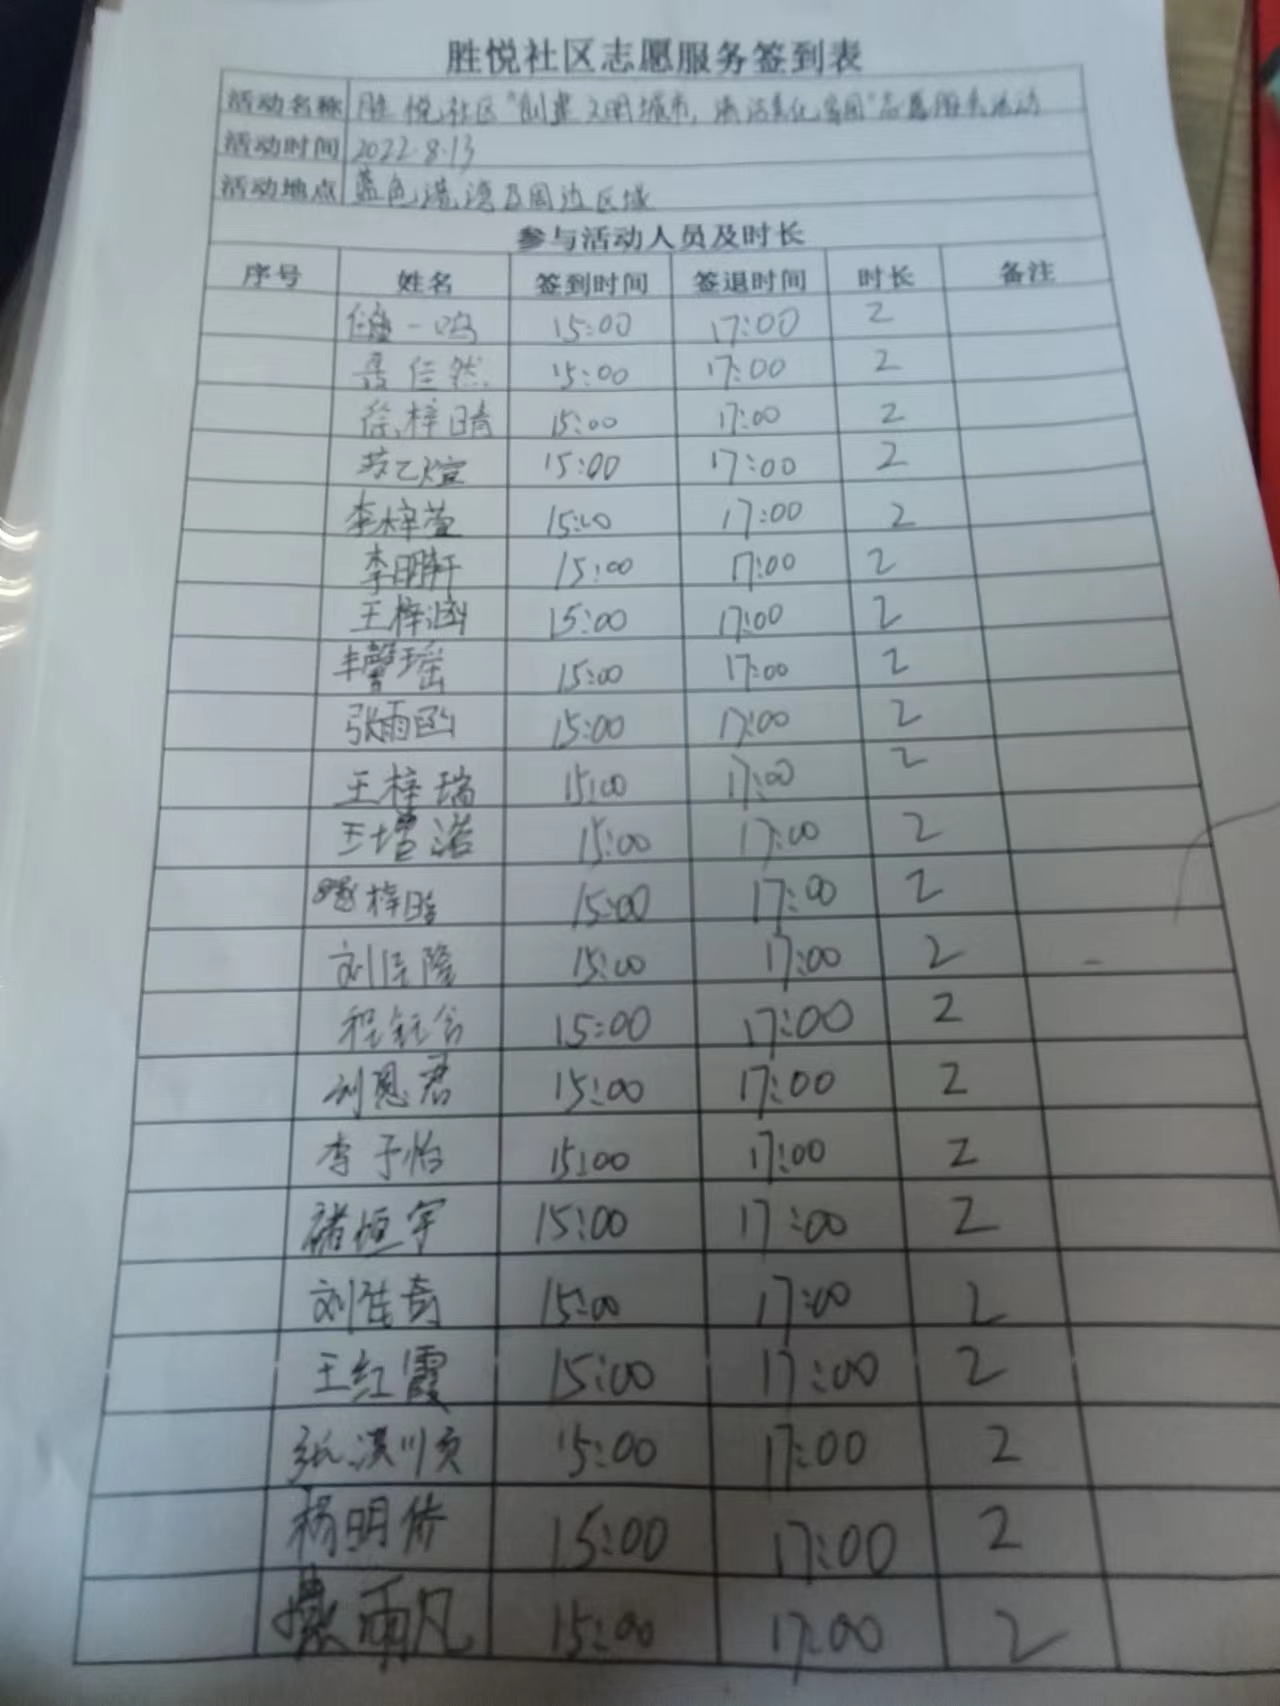 胜悦社区志愿服务签到表
活动名称 胜悦社区"创建文明城市，清洁美化家园"志愿服务活动
活动时间 2022.8.13
活动地点 蓝色港湾及周边区域
参与活动人员及时长
序号 姓名 签到时间 签退时间 时长 备注
一鸣 15:00 17:00 2
佳然 15:00 17:00 2
徐梓晴 15:00 17:00 2
苏乙煊 15:00 17:00 2
李梓萱 15:00 17:00 2
李明轩 15:00 17:00 2
王梓涵 15:00 17:00 2
丰馨瑶 15:00 17:00 2
张雨函 15:00 17:00 2
王梓瑞 15:00 17:00 2
王增诺 15:00 17:00 2
梓晗 15:00 17:00 2
刘 隆 15:00 17:00 2
程钰 15:00 17:00 2
刘恩君 15:00 17:00 2
李予怡 15:00 17:00 2
褚恒宇 15:00 17:00 2
刘佳奇 15:00 17:00 2
王红霞 15:00 17:00 2
张淇顺 15:00 17:00 2
杨明侨 15:00 17:00 2
雨凡 15:00 17:00 2